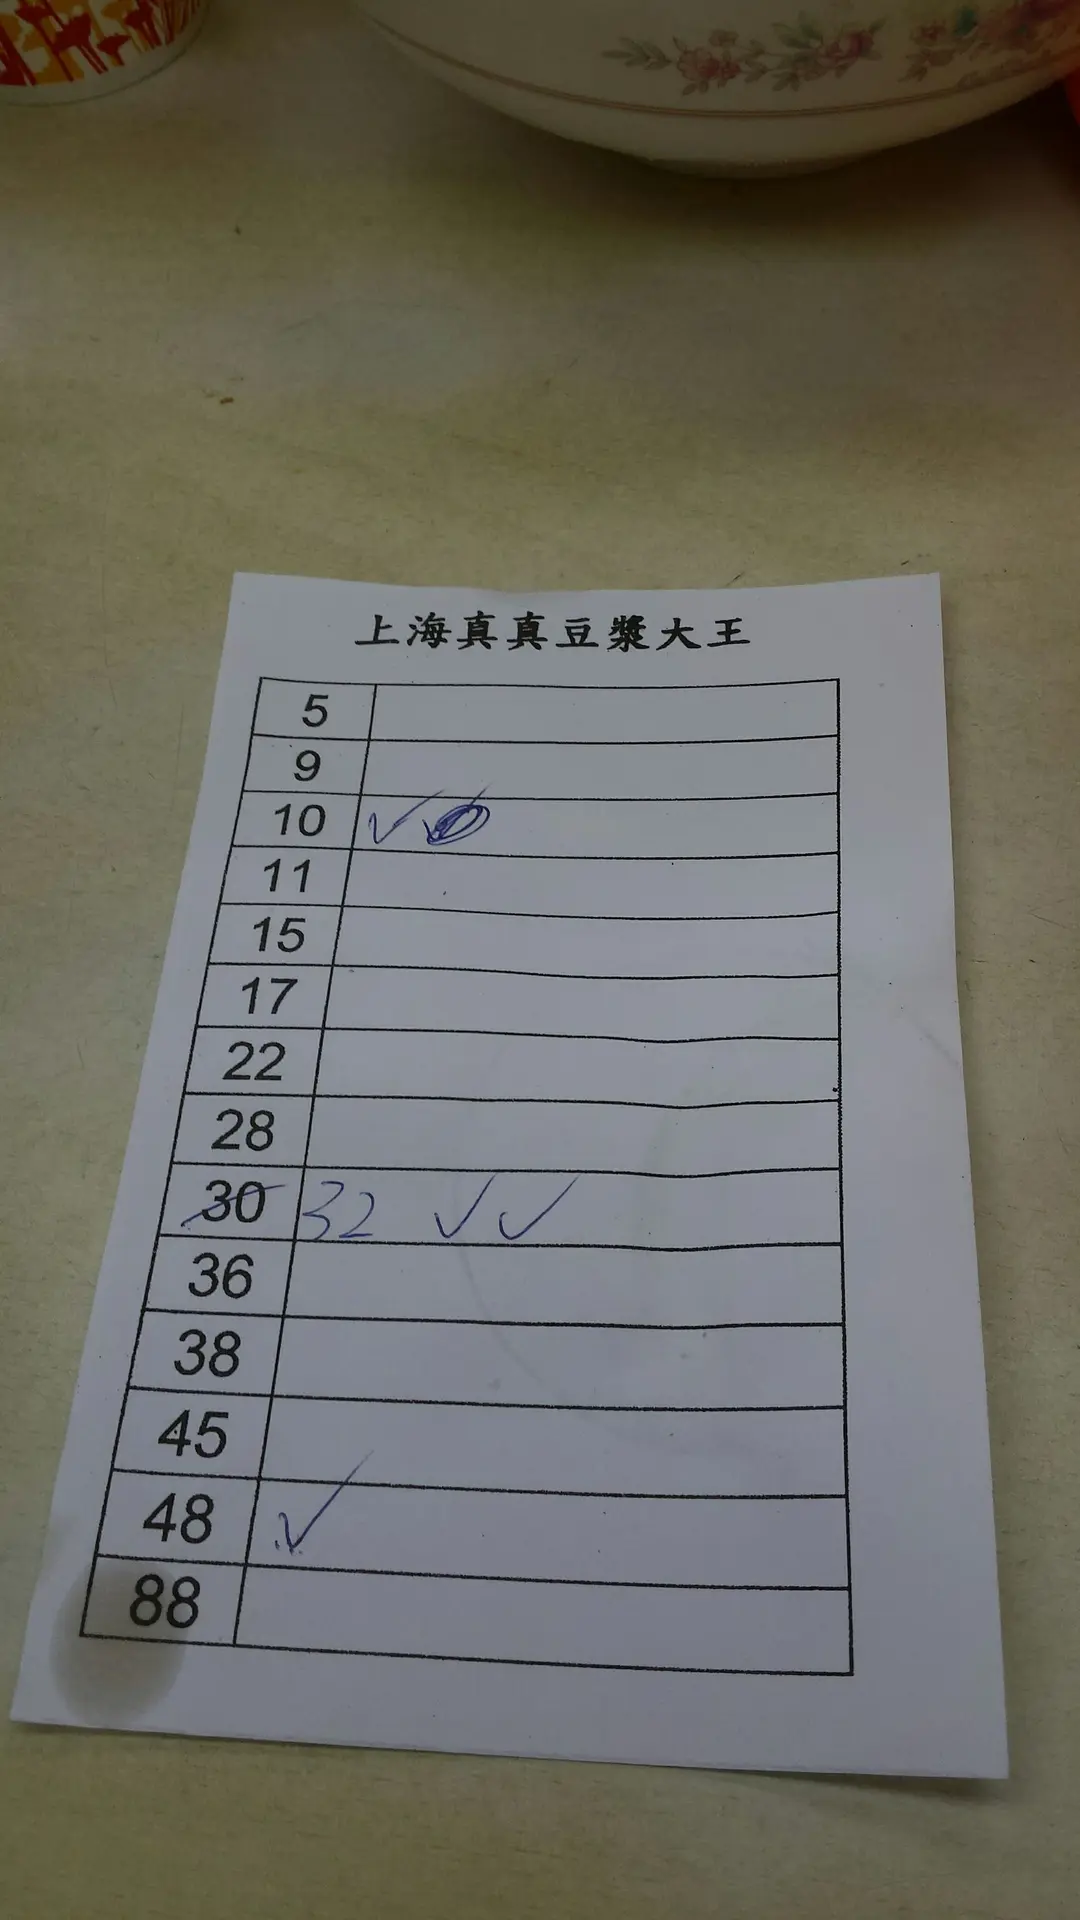 上海真真豆漿大王
5
9
10 ✓
11
15
17
22
28
30 32 ✓ ✓
36
38
45
48 ✓
88